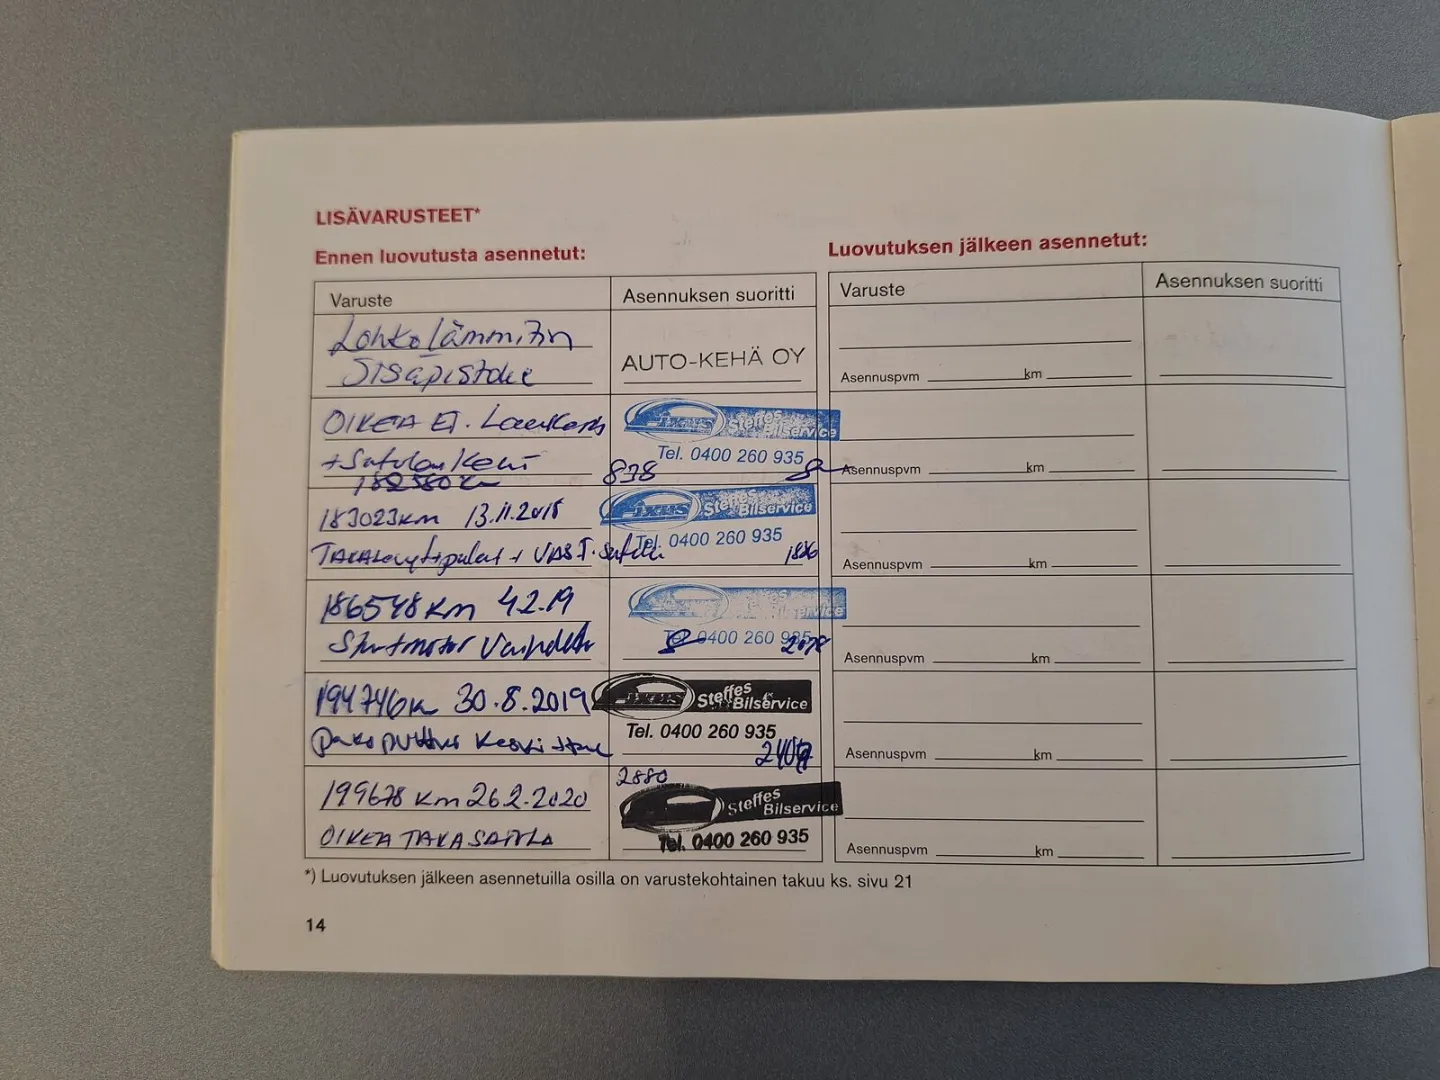 LISÄVARUSTEET*
Ennen luovutusta asennetut:
Varuste
Asennuksen suoritti
Lohkolämmitin
Sisäpistoke
AUTO-KEHÄ OY
OIKEA ET.
+ Satulan
182580 km
Steffes
Bilservice
Tel. 0400 260 935
838
183023 km 13.11.2018
+ VAST.
Steffes
Bilservice
Tel. 0400 260 935
186548 km 4.2.19
Steffes
Bilservice
Tel. 0400 260 935
194746 km 30.8.2019
Steffes
Bilservice
Tel. 0400 260 935
199678 km 26.2.2020
OIKEA TAKA SATULA
2880
Steffes
Bilservice
Tel. 0400 260 935
Luovutuksen jälkeen asennetut:
Varuste
Asennuksen suoritti
Asennuspvm km
Asennuspvm km
Asennuspvm km
Asennuspvm km
Asennuspvm km
Asennuspvm km
*) Luovutuksen jälkeen asennetuilla osilla on varustekohtainen takuu ks. sivu 21
14